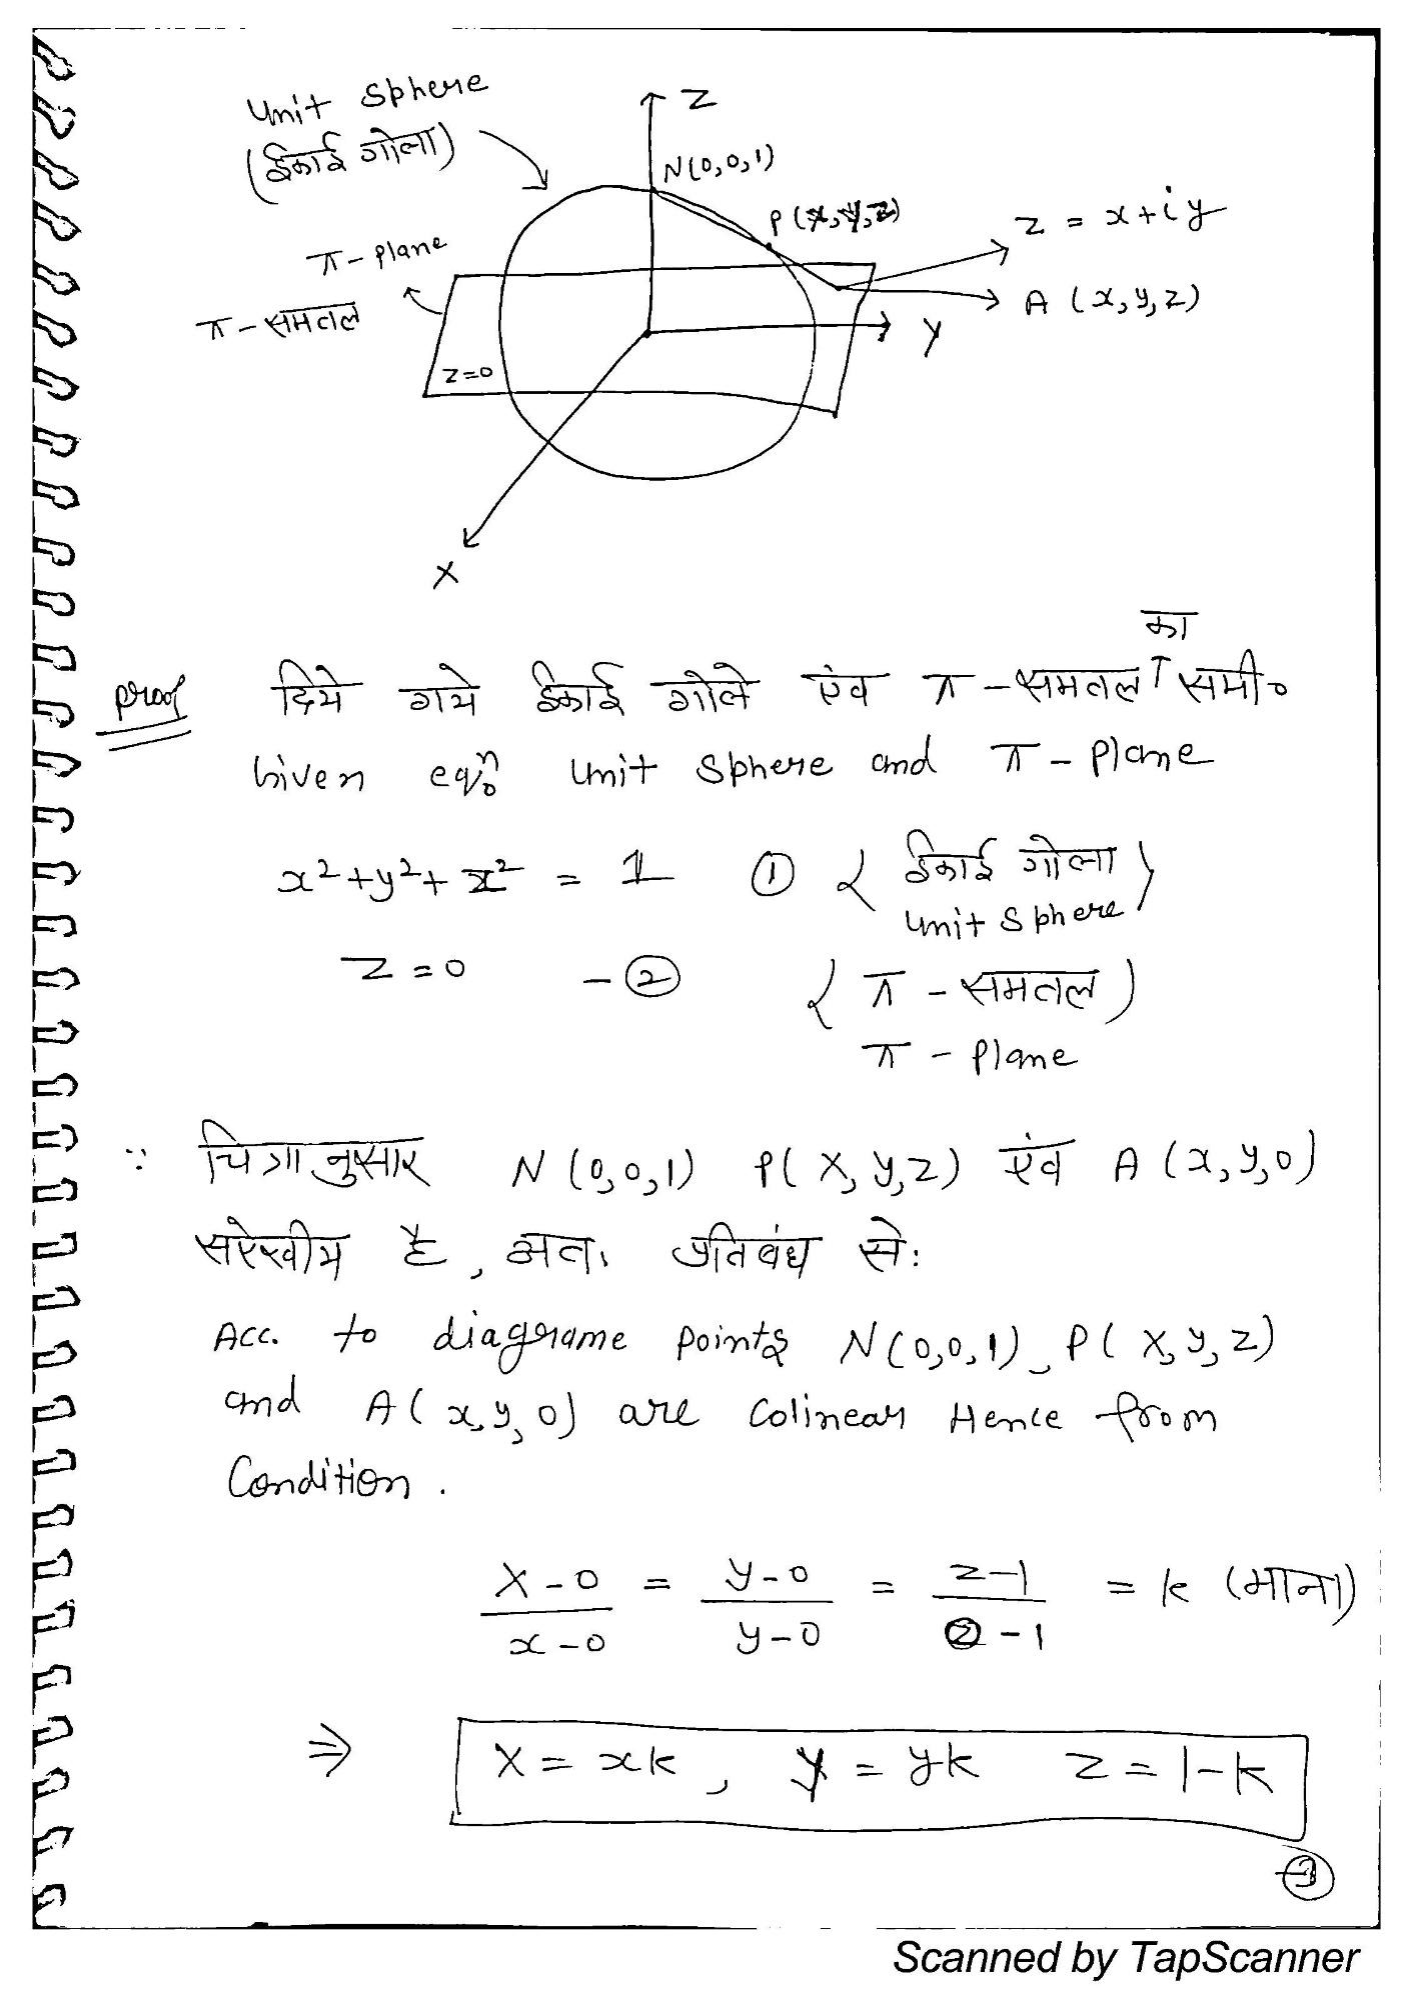 Unit Sphere
(ईकाई गोला)
Z
N(0,0,1)
P(X,Y,Z)
z = x+iy
π-plane
A (x,y,z)
π-समतल
Y
z=0
X
का
proof दिये गये ईकाई गोले एंव π-समतल समी०
Given eqⁿ Unit Sphere and π-Plane
x²+y²+z² = 1 ① { ईकाई गोला }
Unit Sphere
Z=0 -② { π-समतल }
π-Plane
∵ चित्रानुसार N(0,0,1) P(X,Y,Z) एंव A(x,y,0)
सरेखीय है, अतः प्रतिबंध से:
Acc. to diagrame points N(0,0,1), P(X,Y,Z)
and A(x,y,0) are Colinear Hence from
Condition.
X-0/x-0 = Y-0/y-0 = Z-1/0-1 = k (माना)
⇒ X = xk, Y = yk Z = 1-k
-③
Scanned by TapScanner